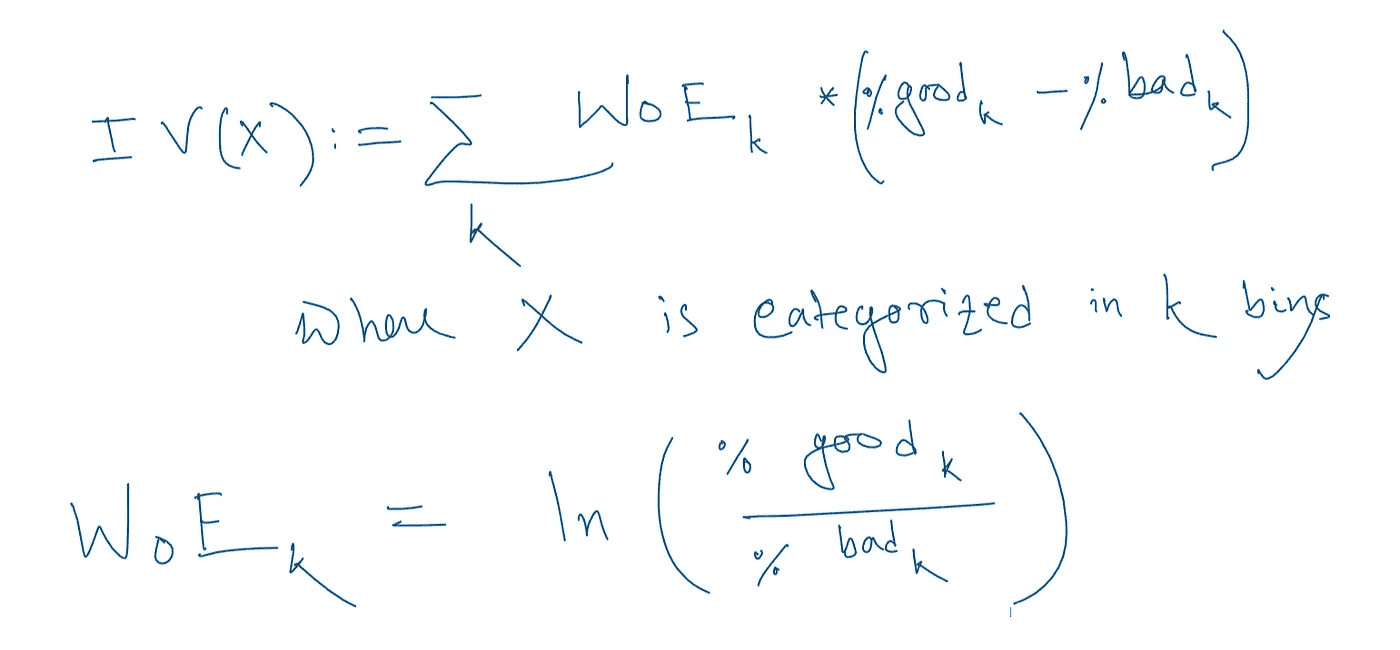 IV(X) := ∑ WoE_k * (% good_k − % bad_k)
k
where X is categorized in k bins
WoE_k = ln ( % good_k / % bad_k )